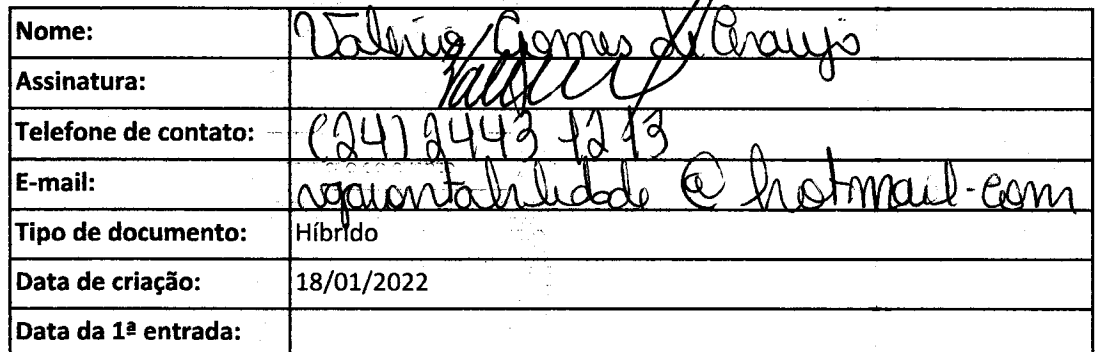 Nome: Valéria Gomes de Araujo
Assinatura:
Telefone de contato: (24) 2443 1213
E-mail: vgacontabilidade@hotmail.com
Tipo de documento: Híbrido
Data de criação: 18/01/2022
Data da 1ª entrada: